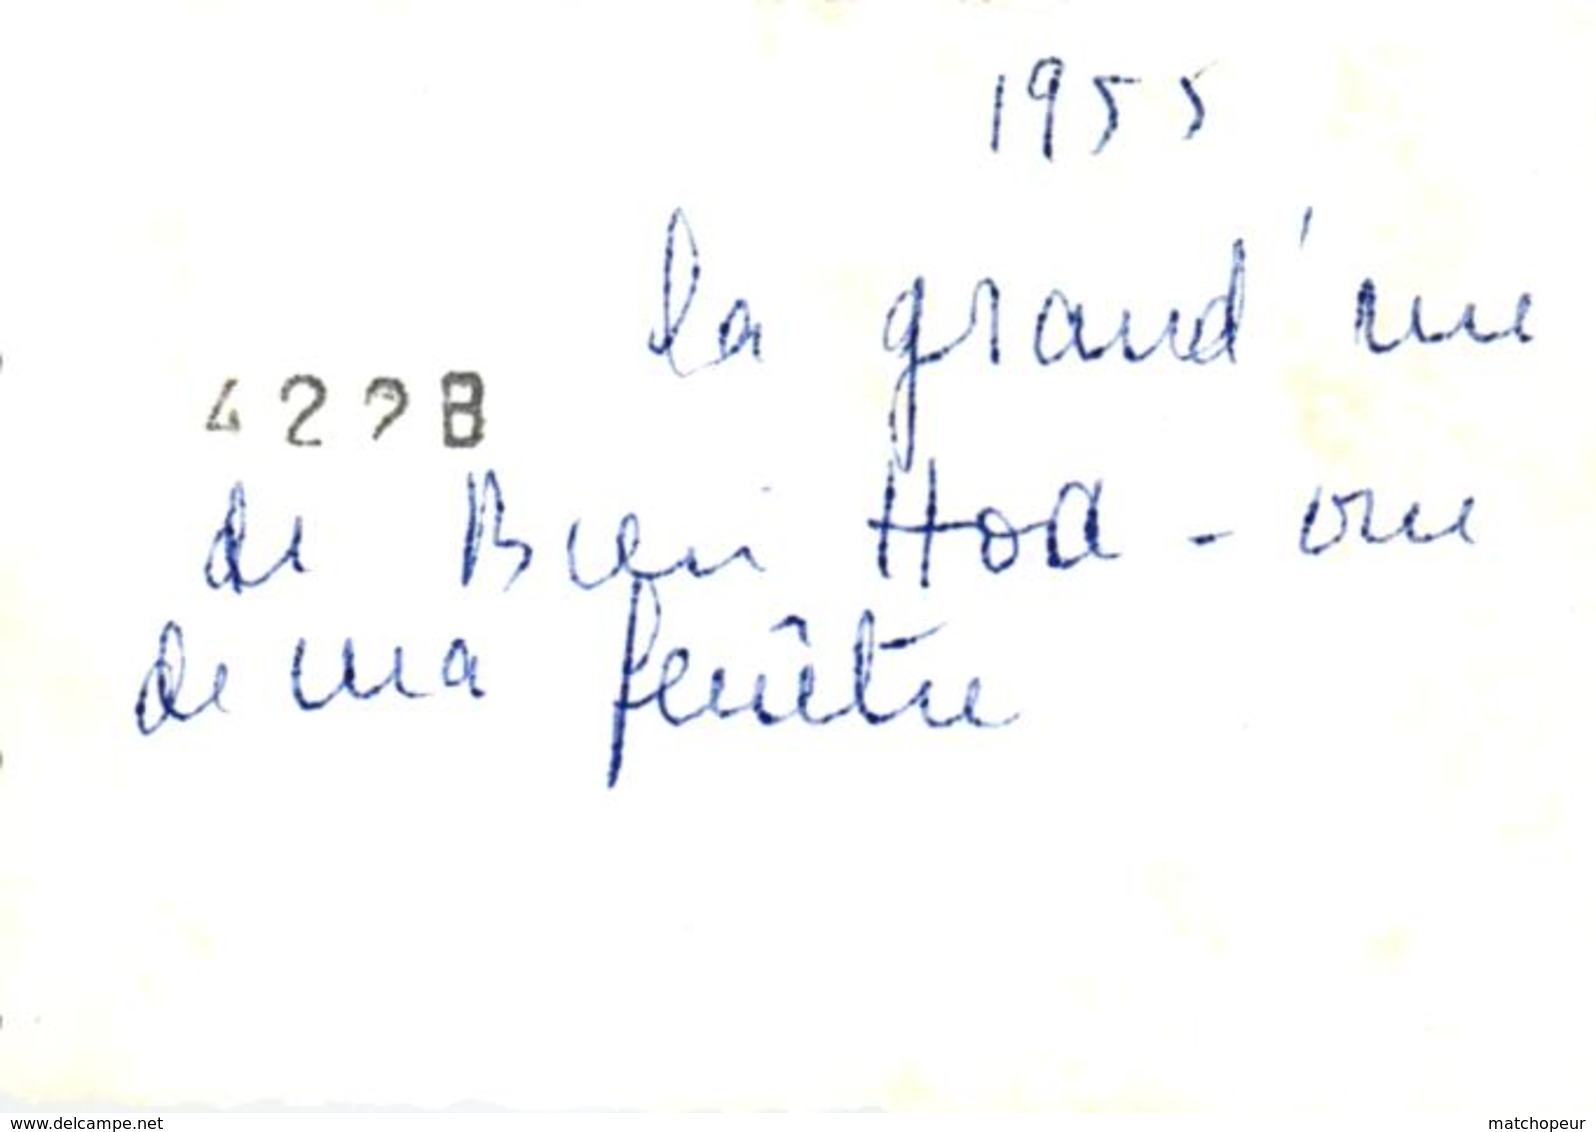 1955
la grand'rue
4228
de Bien Hoa - vue
de ma fenêtre
www.delcampe.net
matchopeur